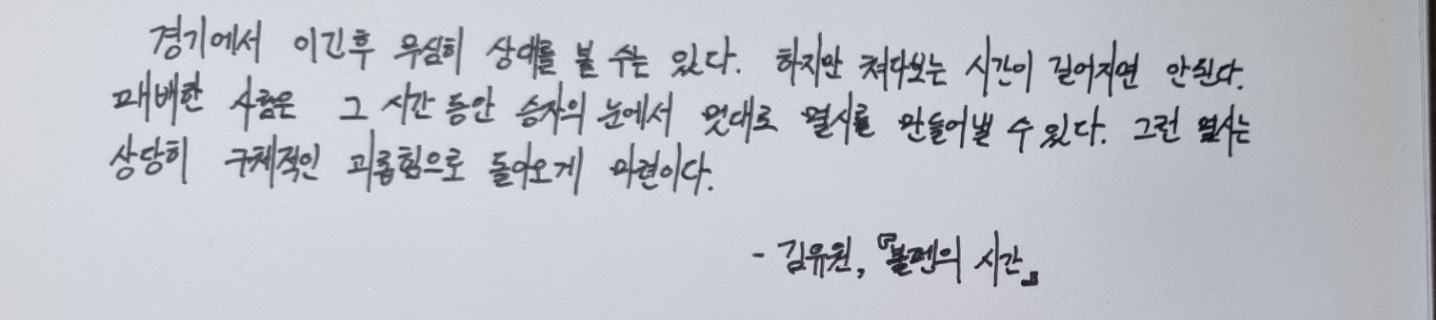 경기에서 이긴후 무심히 상대를 볼 수는 있다. 하지만 쳐다보는 시간이 길어지면 안된다.
패배한 사람은 그 시간 동안 승자의 눈에서 멋대로 멸시를 만들어낼 수 있다. 그런 멸시는
상당히 구체적인 괴롭힘으로 돌아오게 마련이다.
- 김유원, 『불펜의 시간』